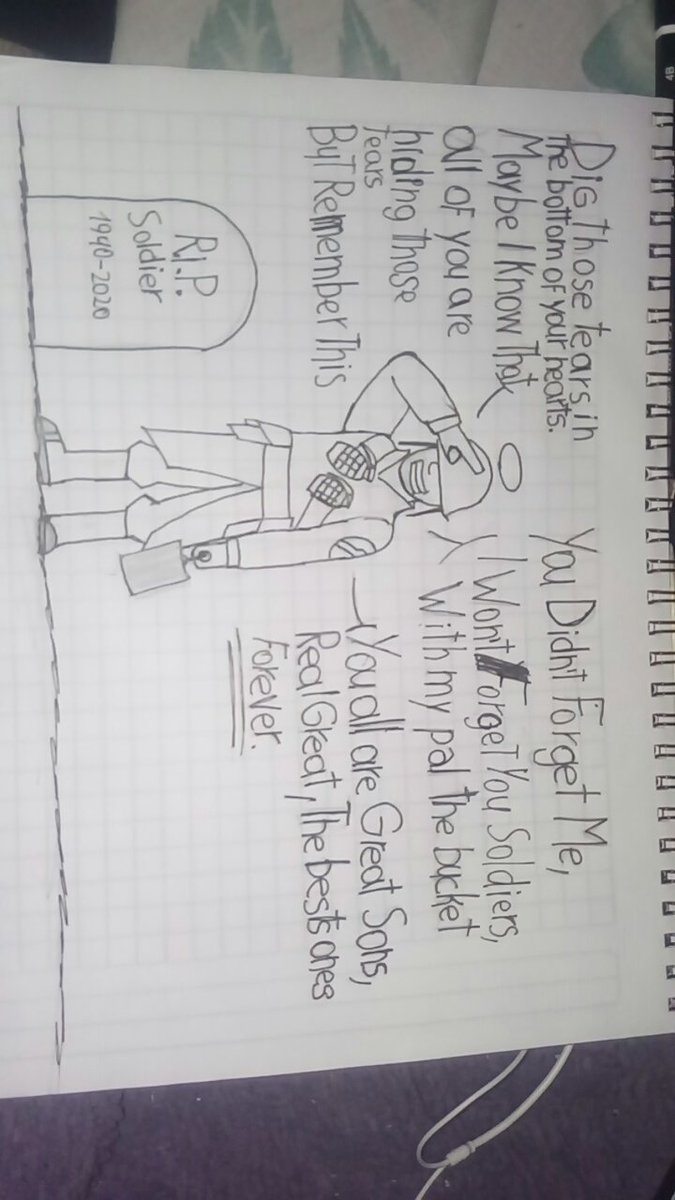 Dig Those tears in
the bottom of your hearts.
Maybe I Know That
all of you are
hiding those
tears
But Remember This
You Didn't Forget Me,
I Wont Forget You Soldiers,
With my pal the bucket
You all are Great Sons,
Real Great, The bests ones
Forever.
R.I.P.
Soldier
1940-2020
4B